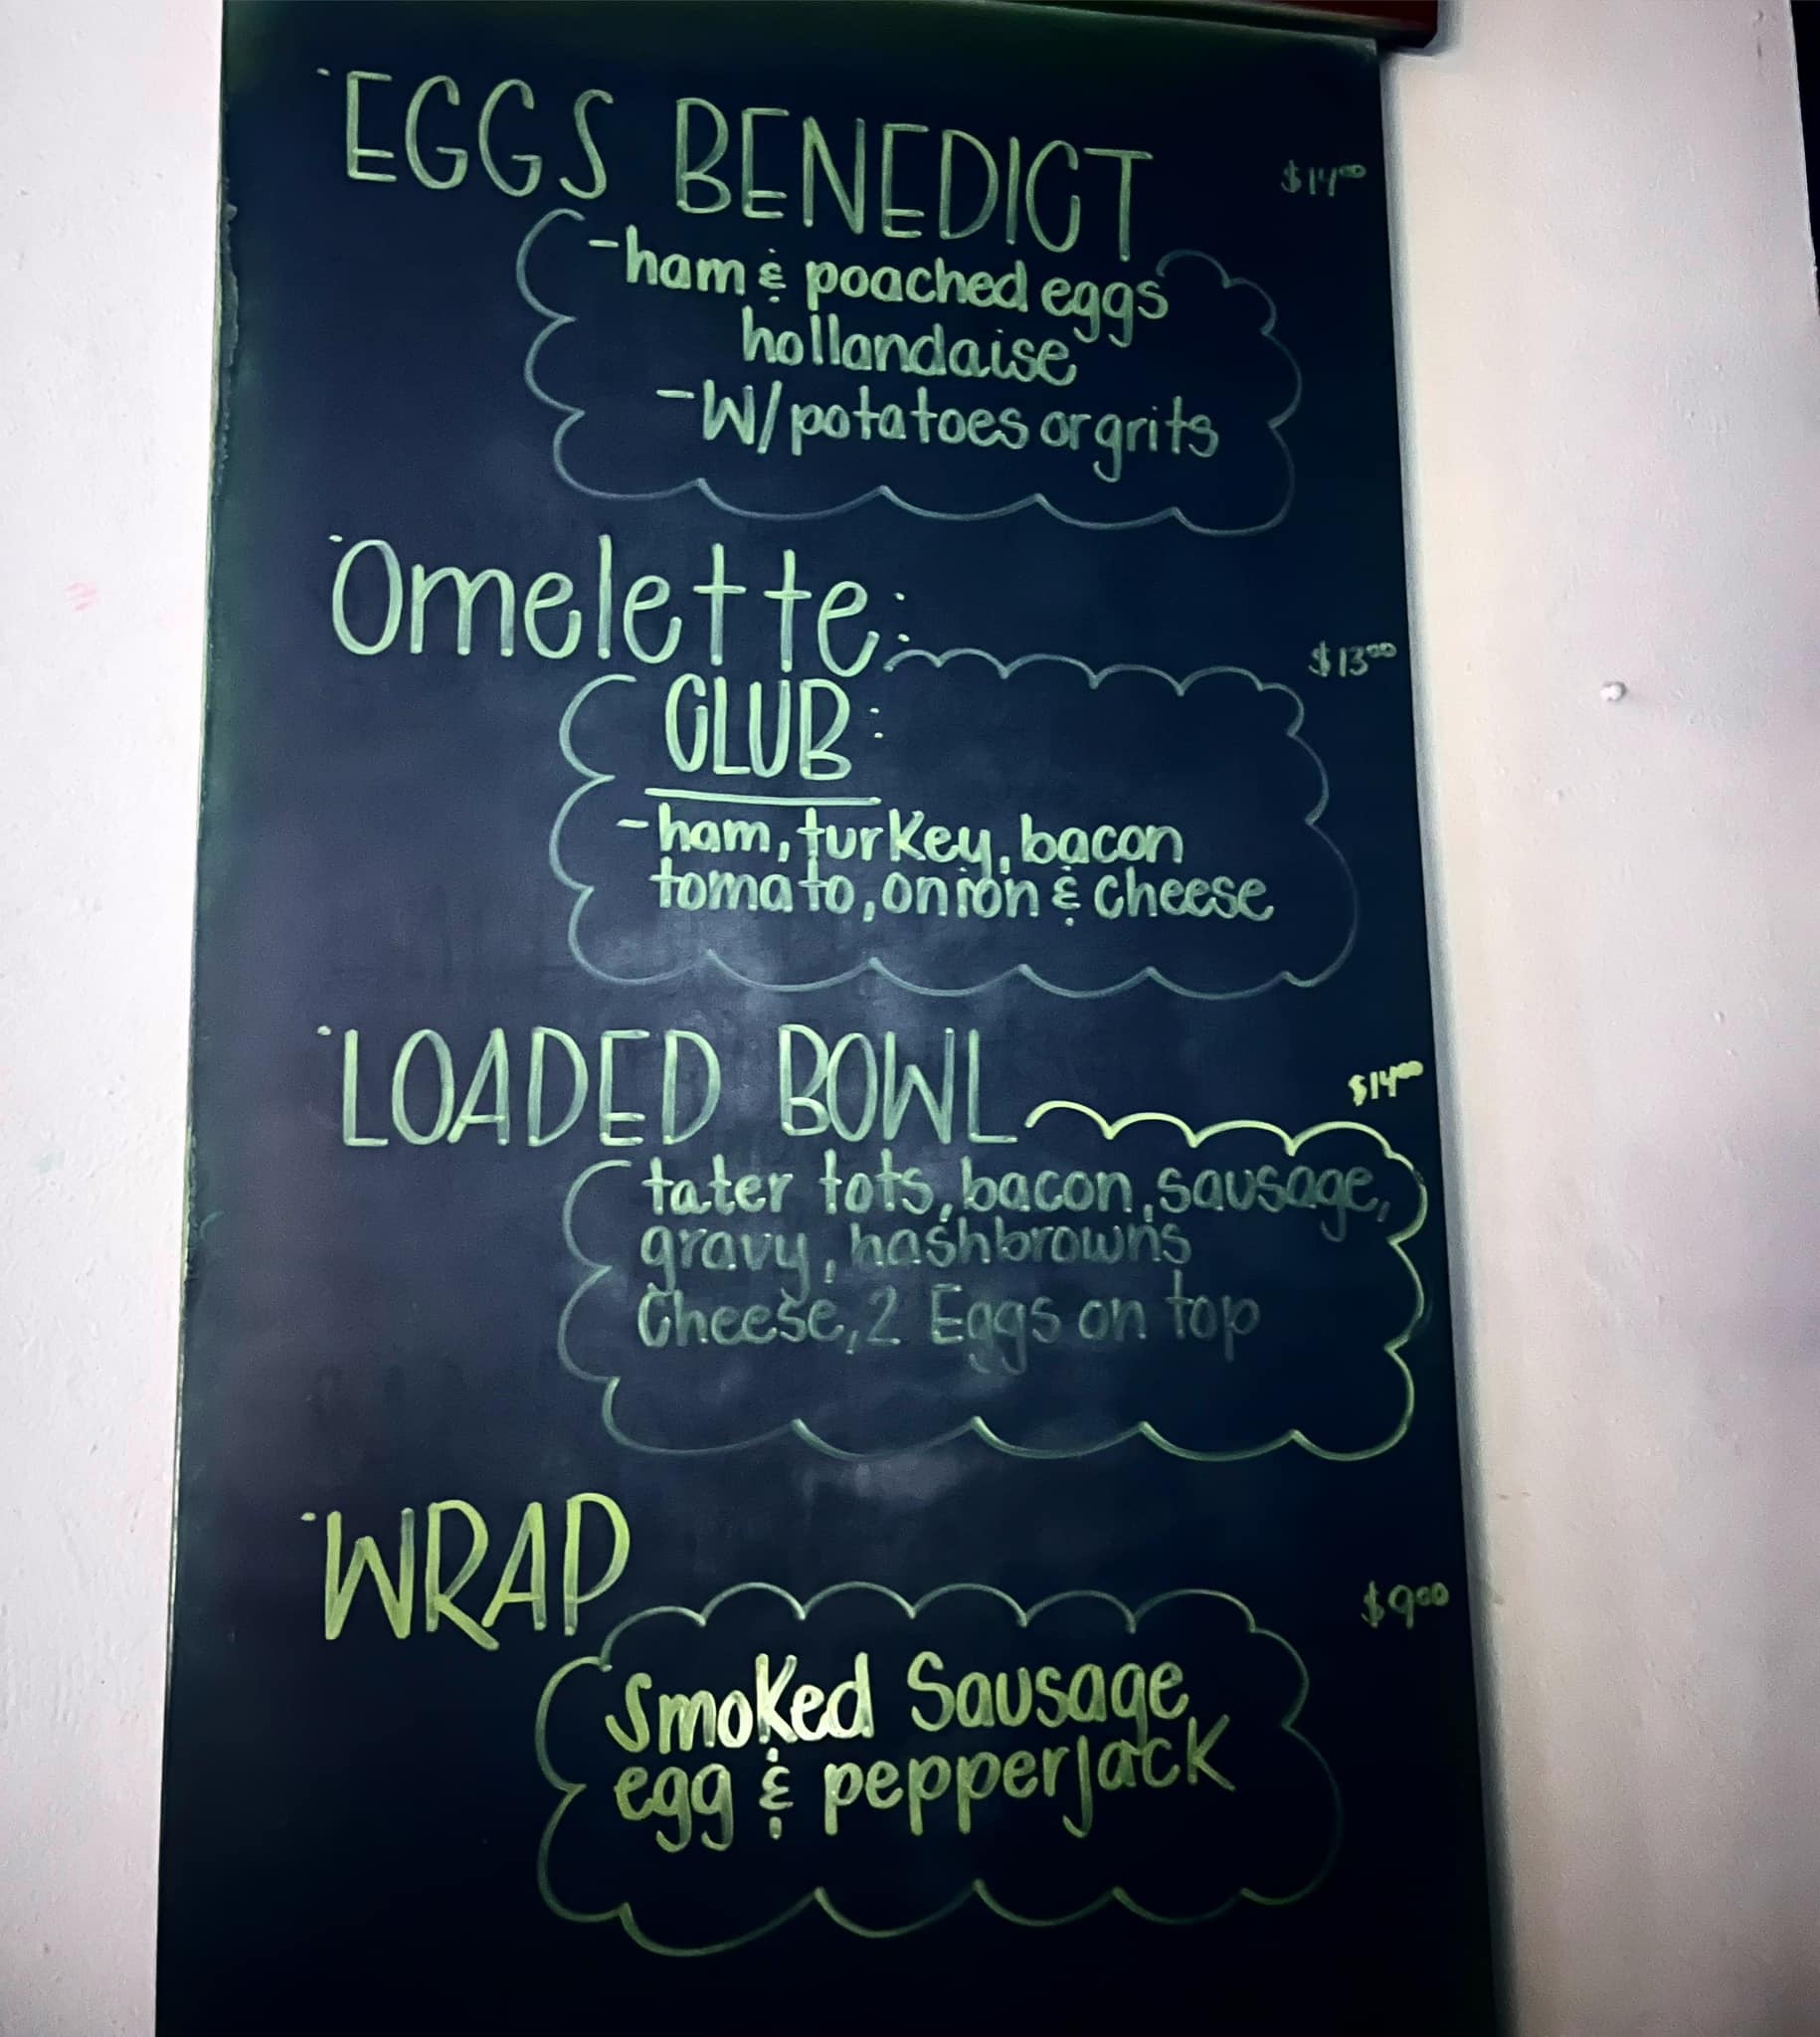 EGGS BENEDICT $14.00
-ham & poached eggs
hollandaise
-W/potatoes or grits
Omelette: $13.00
CLUB:
-ham, turkey, bacon
tomato, onion & cheese
LOADED BOWL $14.00
tater tots, bacon, sausage,
gravy, hashbrowns
Cheese, 2 Eggs on top
WRAP $9.00
Smoked Sausage
egg & pepperjack